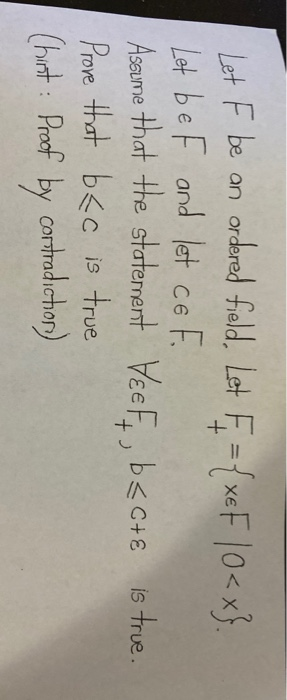 Let F be an ordered field. Let F₊ = {x∈F | 0 < x}.
Let b∈F and let c∈F.
Assume that the statement ∀ε∈F₊, b ≤ c+ε is true.
Prove that b ≤ c is true
(hint: Proof by contradiction)